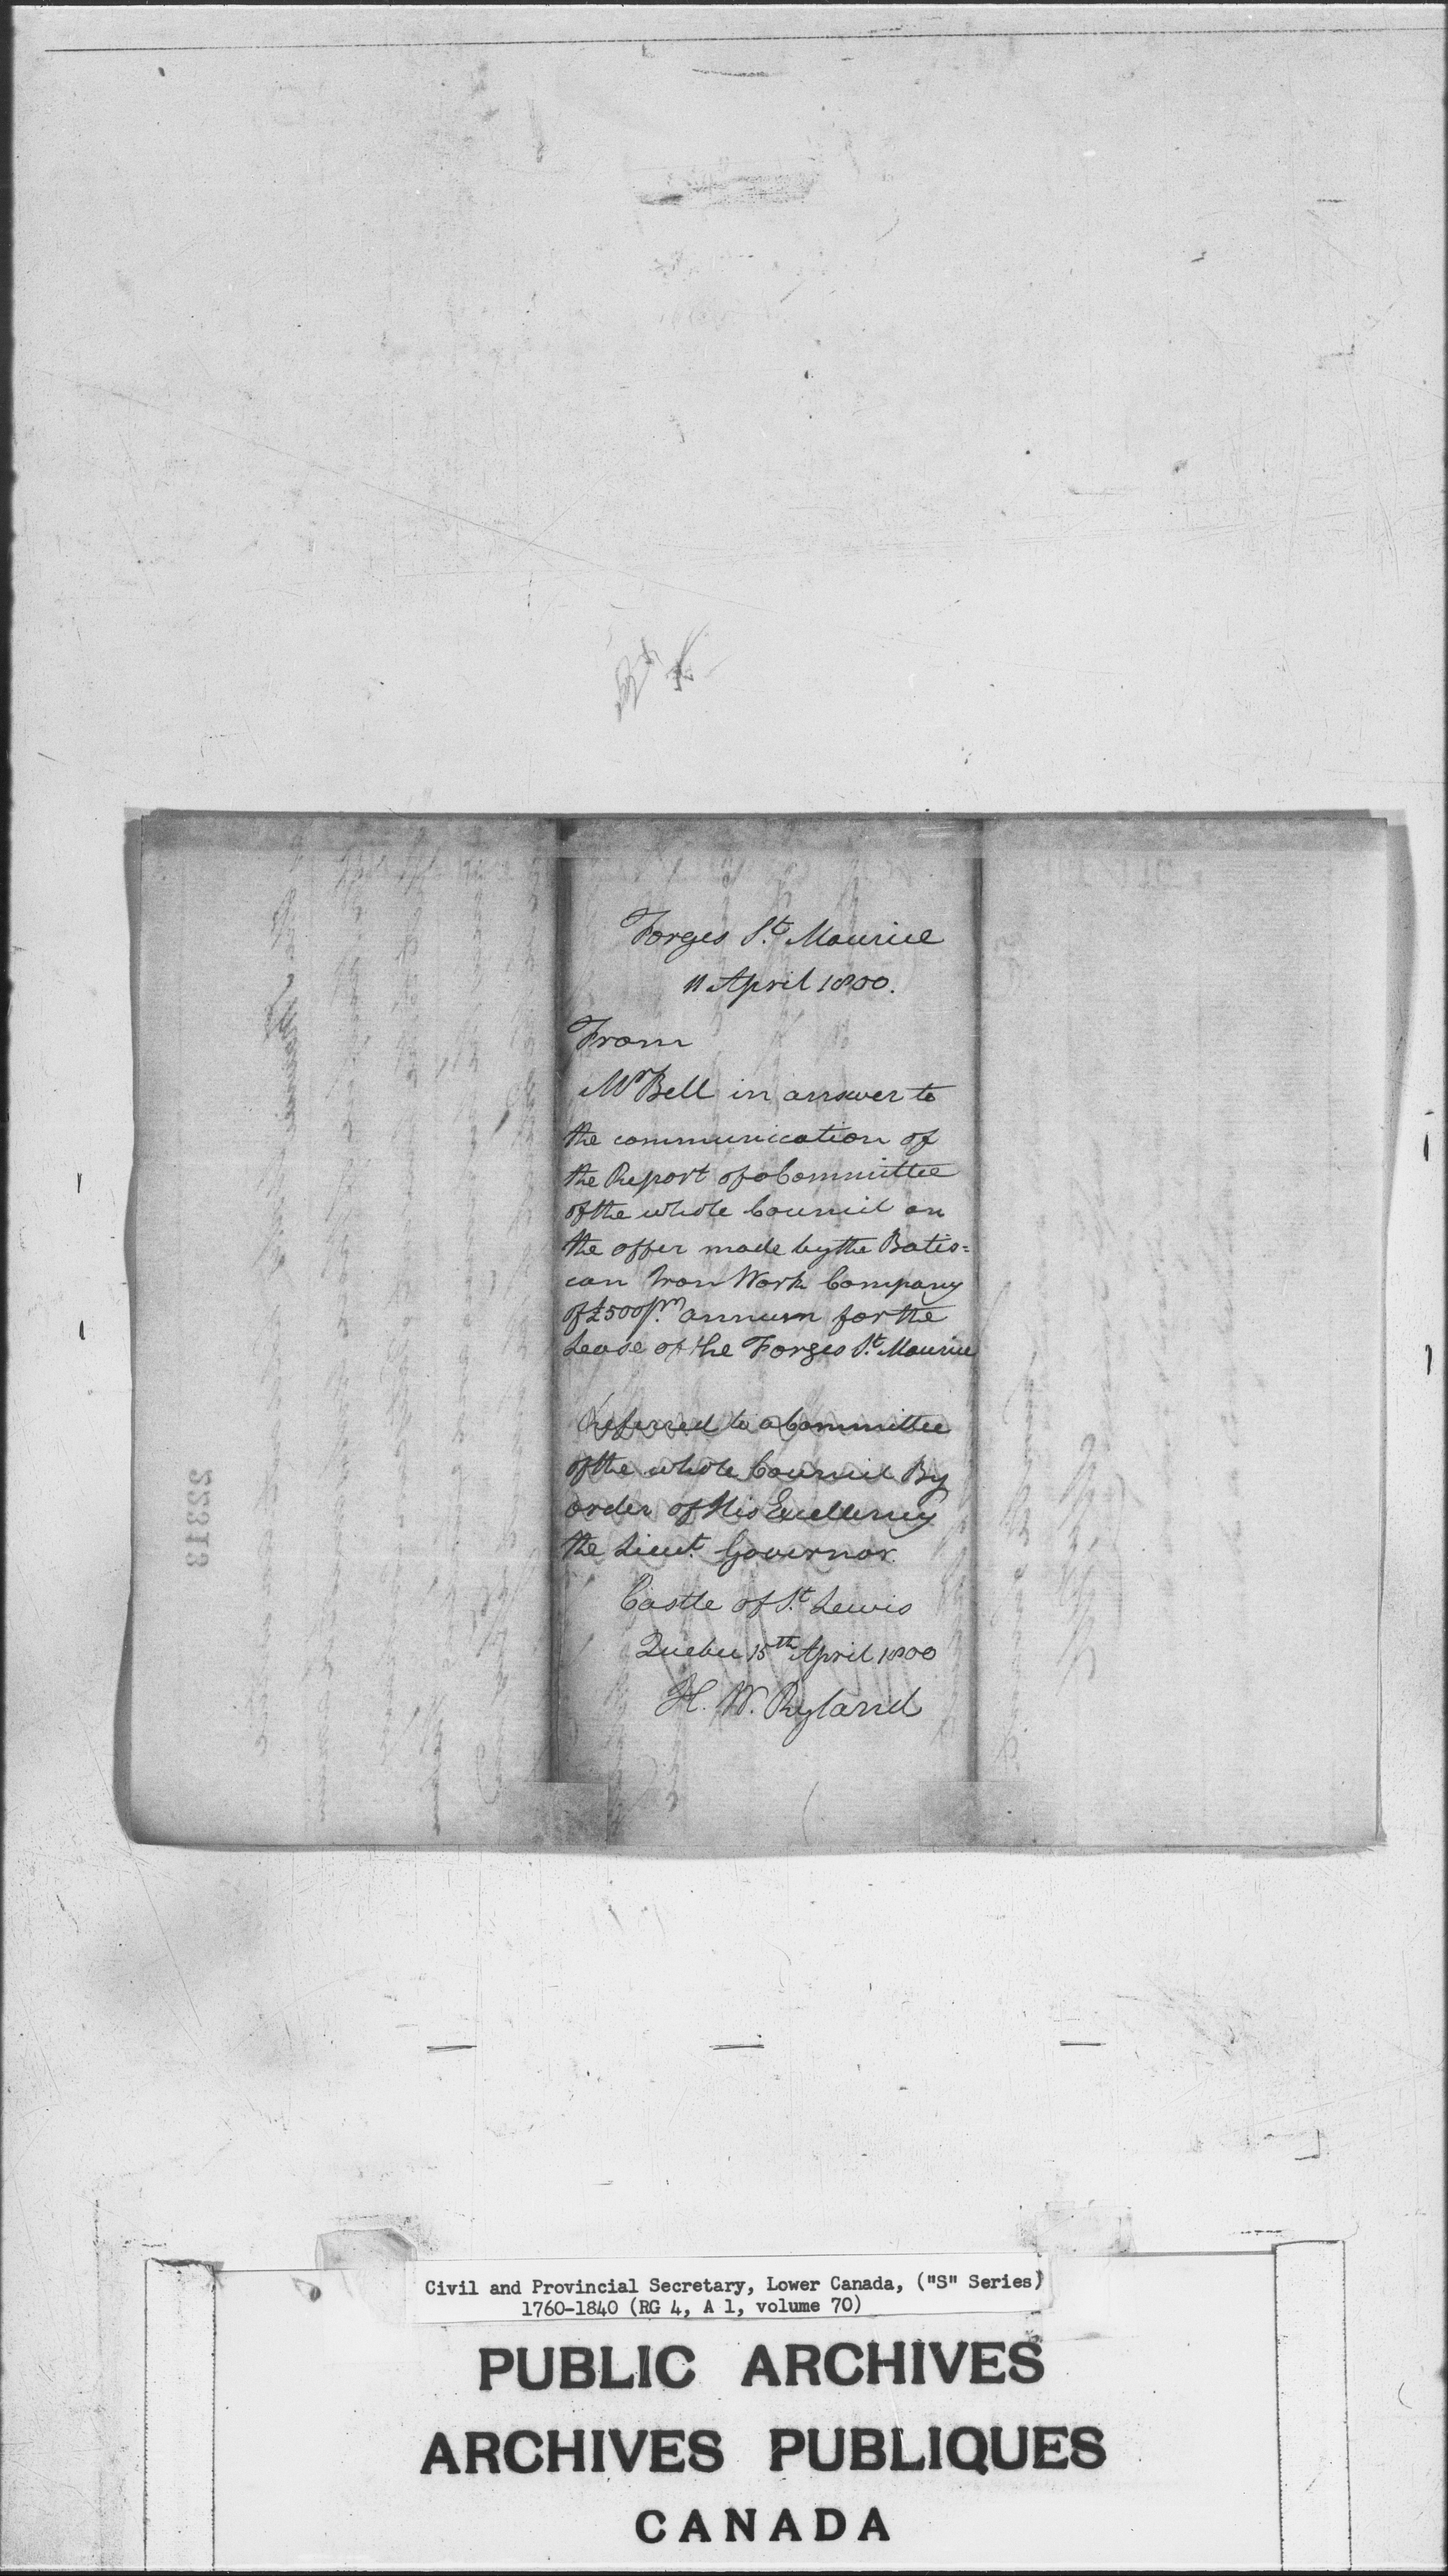 Forges St. Maurice
11 April 1800.
From
Mr Bell in answer to
the communication of
the Report of a Committee
of the whole Council on
the offer made by the Batis=
can Iron Work Company
of £500 pr. annum for the
Lease of the Forges St. Maurice
Referred to a Committee
of the whole Council By
order of His Excellency
the Lieut. Governor.
Castle of St. Lewis
Quebec 15th April 1800
H. W. Ryland
22313
Civil and Provincial Secretary, Lower Canada, ("S" Series)
1760-1840 (RG 4, A 1, volume 70)
PUBLIC ARCHIVES
ARCHIVES PUBLIQUES
CANADA